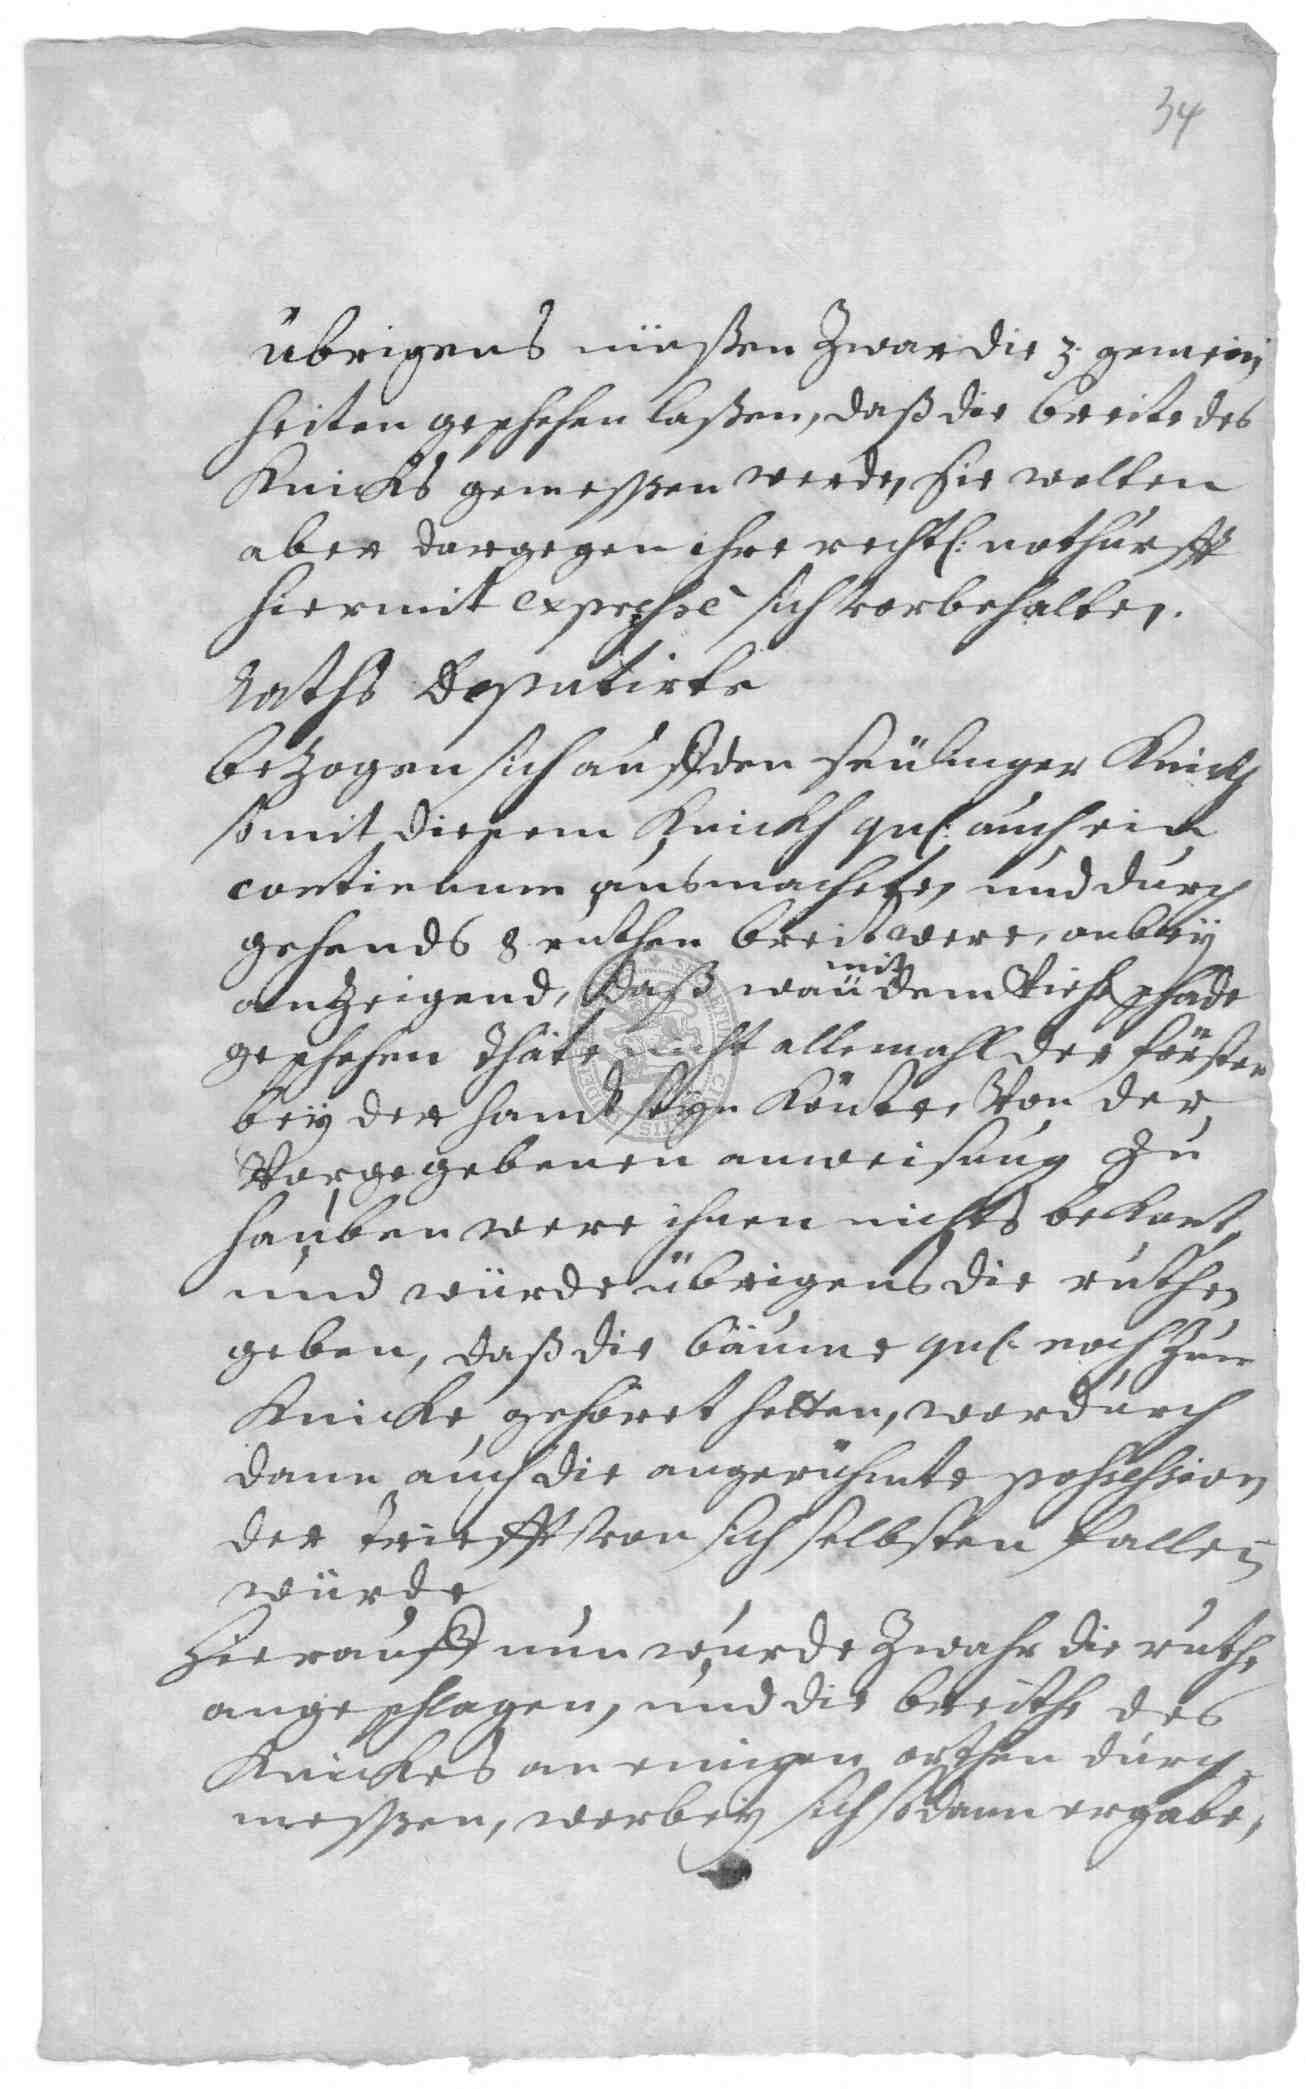 34
übrigens müeßen Zwar die 3. gemein
heiten geschehen laßen, daß die breite des
Knicks gemeßen werde, sie wolten
aber dargegen ihre rechtl: nothurfft
hiermit expressè sich vorbehalten.
Raths Deputirte
bezogen sich auff den seülinger Knick
so mit diesem Knickh qul: auch ein
continuum ausmachete, und durch
gehends 8 ruthen breit were, anbeÿ
anzeigend, daß wan mit dem Vieh schade
geschehen thäte nicht allemahl der förster
beÿ der hand seyn könte, Von der
Vorgegebenen anweisung zu
hauben were ihnen nichts bekant,
und würde übrigens die ruthe
geben, daß die bäume qul: noch zum
Knicke gehöret hetten, wordurch
dann auch die angerühmte possession
der Triefft von sich selbsten fallen
würde
Hierauff nun wurde Zwahr die ruthe
angeschlagen, und die breithe des
Knickes an einigen orthen durch
meßen, worbeÿ sich sodann ergabe,